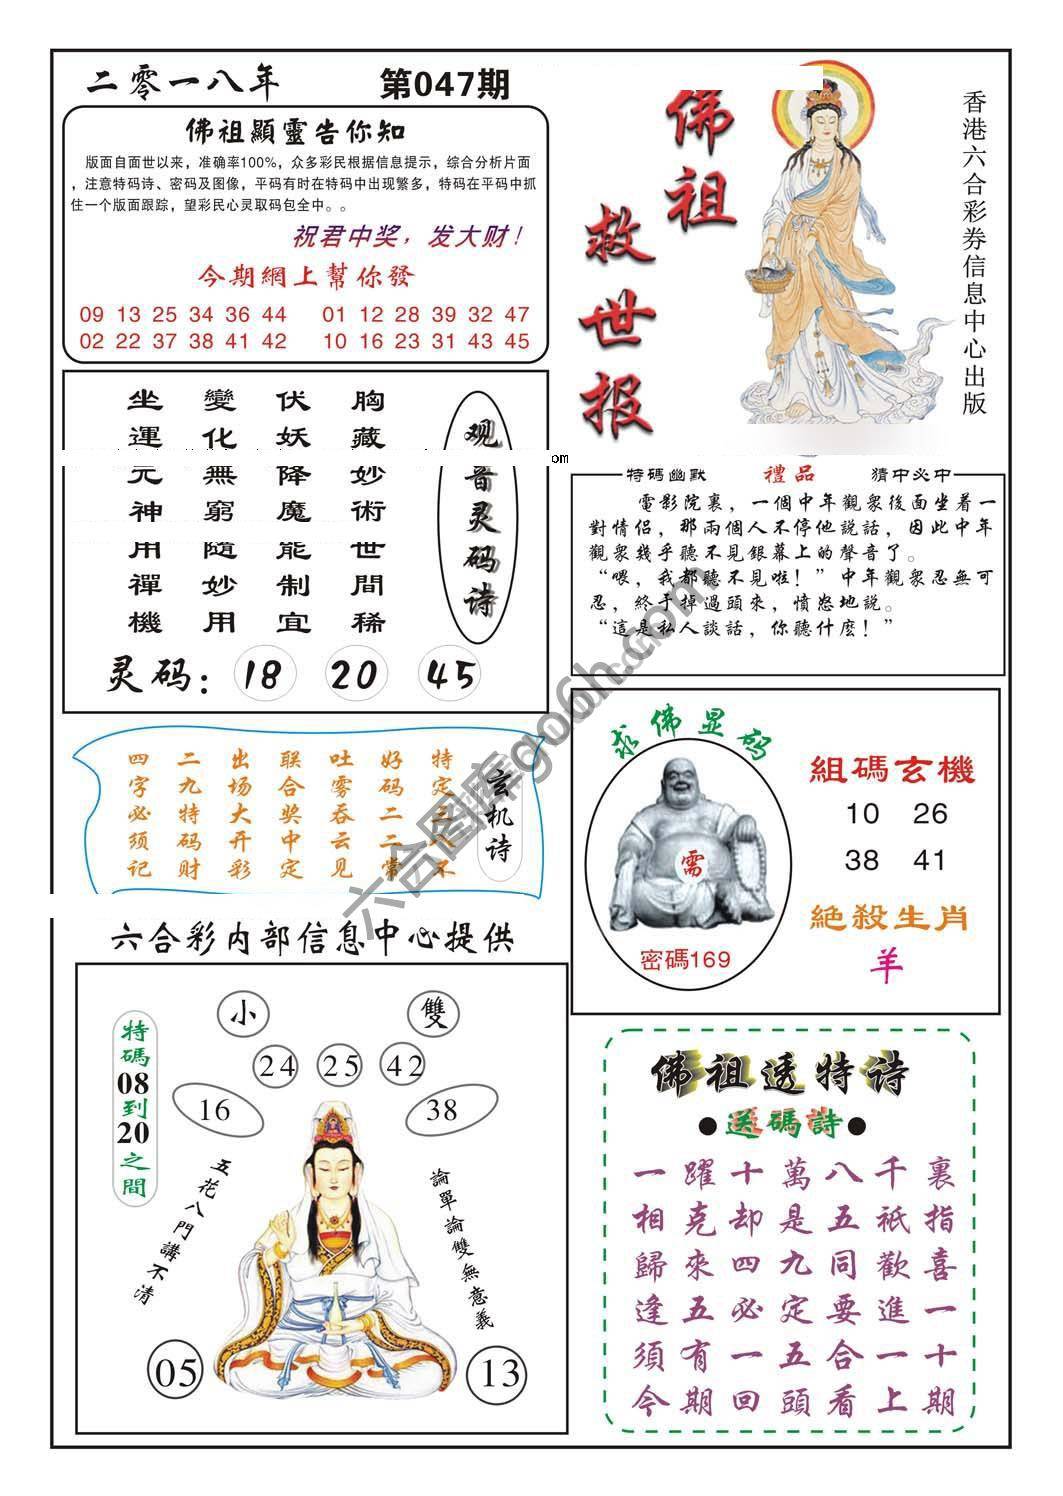 二零一八年
第047期
佛祖顯靈告你知
版面自面世以来，准确率100%，众多彩民根据信息提示，综合分析片面
，注意特码诗、密码及图像，平码有时在特码中出现繁多，特码在平码中抓
住一个版面跟踪，望彩民心灵取码包全中。。
祝君中奖，发大财！
今期網上幫你發
09 13 25 34 36 44 01 12 28 39 32 47
02 22 37 38 41 42 10 16 23 31 43 45
佛祖
救世报
香港六合彩券信息中心出版
观音灵码诗
胸藏妙術世間稀
伏妖降魔能制宜
變化無窮隨妙用
坐運元神用禪機
灵码：18 20 45
om
特碼幽默 禮品 猜中必中
電影院裏，一個中年觀衆後面坐着一
對情侣，那兩個人不停他説話，因此中年
觀衆幾乎聽不見銀幕上的聲音了。
“喂，我都聽不見啦！”中年觀衆忍無可
忍，終于掉過頭來，憤怒地説。
“這是私人談話，你聽什麽！”
玄机诗
特定三八不
好码二二常
吐雾吞云见
联合奖中定
出场大开彩
二九特码财
四字必须记
求佛显码
需
密碼169
組碼玄機
10 26
38 41
絕殺生肖
羊
六合彩内部信息中心提供
小 雙
24 25 42
16 38
特碼08到20之間
五花八門講不清
論單論雙無意義
05 13
佛祖透特诗
●送碼詩●
一躍十萬八千裏
相克却是五祇指
歸來四九同歡喜
逢五必定要進一
須有一五合一十
今期回頭看上期
六合图库go6h.com